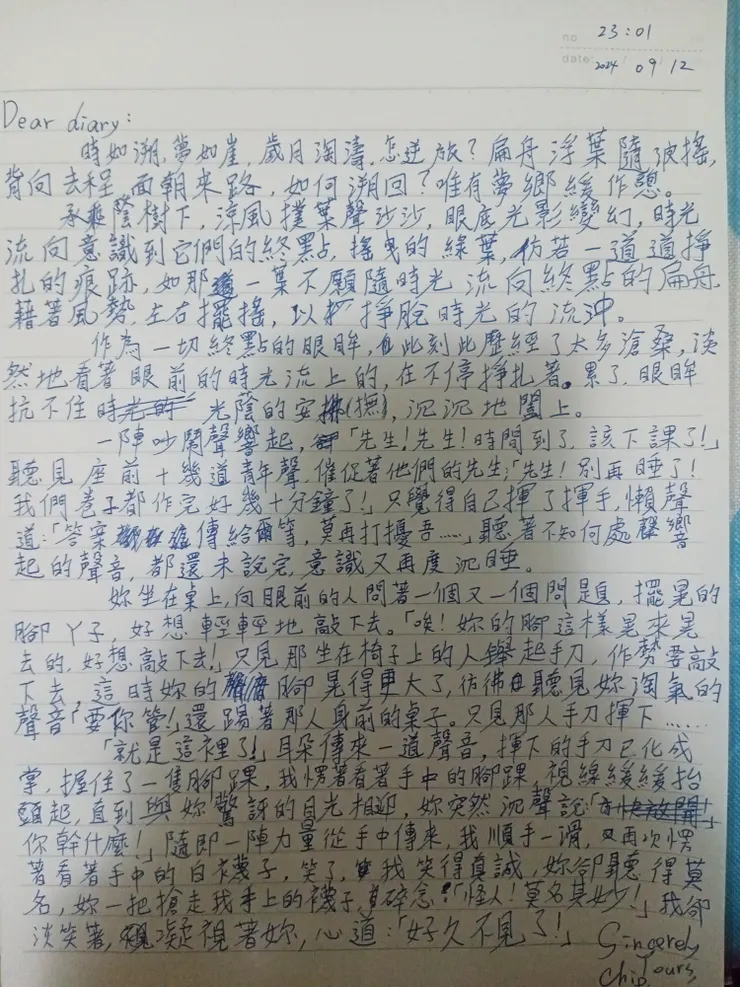 no 23:01
date: 2024 09 12
Dear diary:
時如溯,夢如崖,歲月淘濤,怎逆放?扁舟浮葉隨波搖,
背向去程,面朝來路,如何溯回?唯有夢鄉緩作憩。
承蔭樹下,涼風撲葉聲沙沙,眼底光影變幻,時光
流向意識到它們的終點,搖曳的綠葉,仿若一道道掙
扎的痕跡,如那一葉不願隨時光流向終點的扁舟,
藉著風勢,左右擺搖,以掙脫時光的流沖。
作為一切終點的眼眸,此刻此歷經了太多滄桑,淡
然地看著眼前的時光流上的,在不停掙扎著。累了,眼眸
抗不住時光陰的安排(撫),沉沉地闔上。
一陣吵鬧聲響起,「先生!先生!時間到了,該下課了!」
聽見座前十幾道青年聲,催促著他們的先生;「先生!別再睡了!
我們卷子都作完好幾十分鐘了!」只覺得自己揮了揮手,懶聲
道:「答案傳給爾等,莫再打擾吾……」聽著不知何處聲響
起的聲音,都還未說完,意識又再度沉睡。
妳坐在桌上,向眼前的人問著一個又一個問題,擺晃的
腳丫子,好想輕輕地敲下去。「唉!妳的腳這樣晃來晃
去的,好想敲下去!」只見那坐在椅子上的人舉起手刀,作勢要敲
下去,這時妳的腳晃得更大了,彷彿聽見妳淘氣的
聲音「要你管!」還踢著那人身前的桌子。只見那人手刀揮下……
「就是這裡了!」耳朵傳來一道聲音,揮下的手刀已化成
掌,握住了一隻腳踝,我愣著看著手中的腳踝,視線緩緩抬
頭起,直到與妳驚訝的目光相迎,妳突然沉聲說:「快放開!
你幹什麼!」隨即一陣力量從手中傳來,我順手一滑,又再次愣
著看著手中的白襪子,笑了,我笑得真誠,妳卻聽得莫
名,妳一把搶走我手上的襪子,碎念:「怪人!莫名其妙!」我卻
淡笑著,凝視著妳,心道:「好久不見了!」 Sincerely
Yours